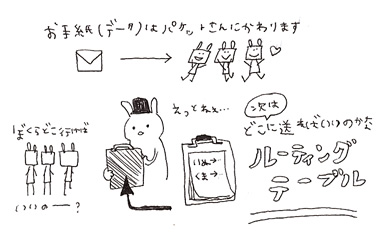 お手紙(データ)はパケットさんにかわります
ぼくらどこ行けば
いいのー?
えっとねぇ…
いぬ→
くま→
次は
どこに送ればいいのかな
ルーティング
テーブル